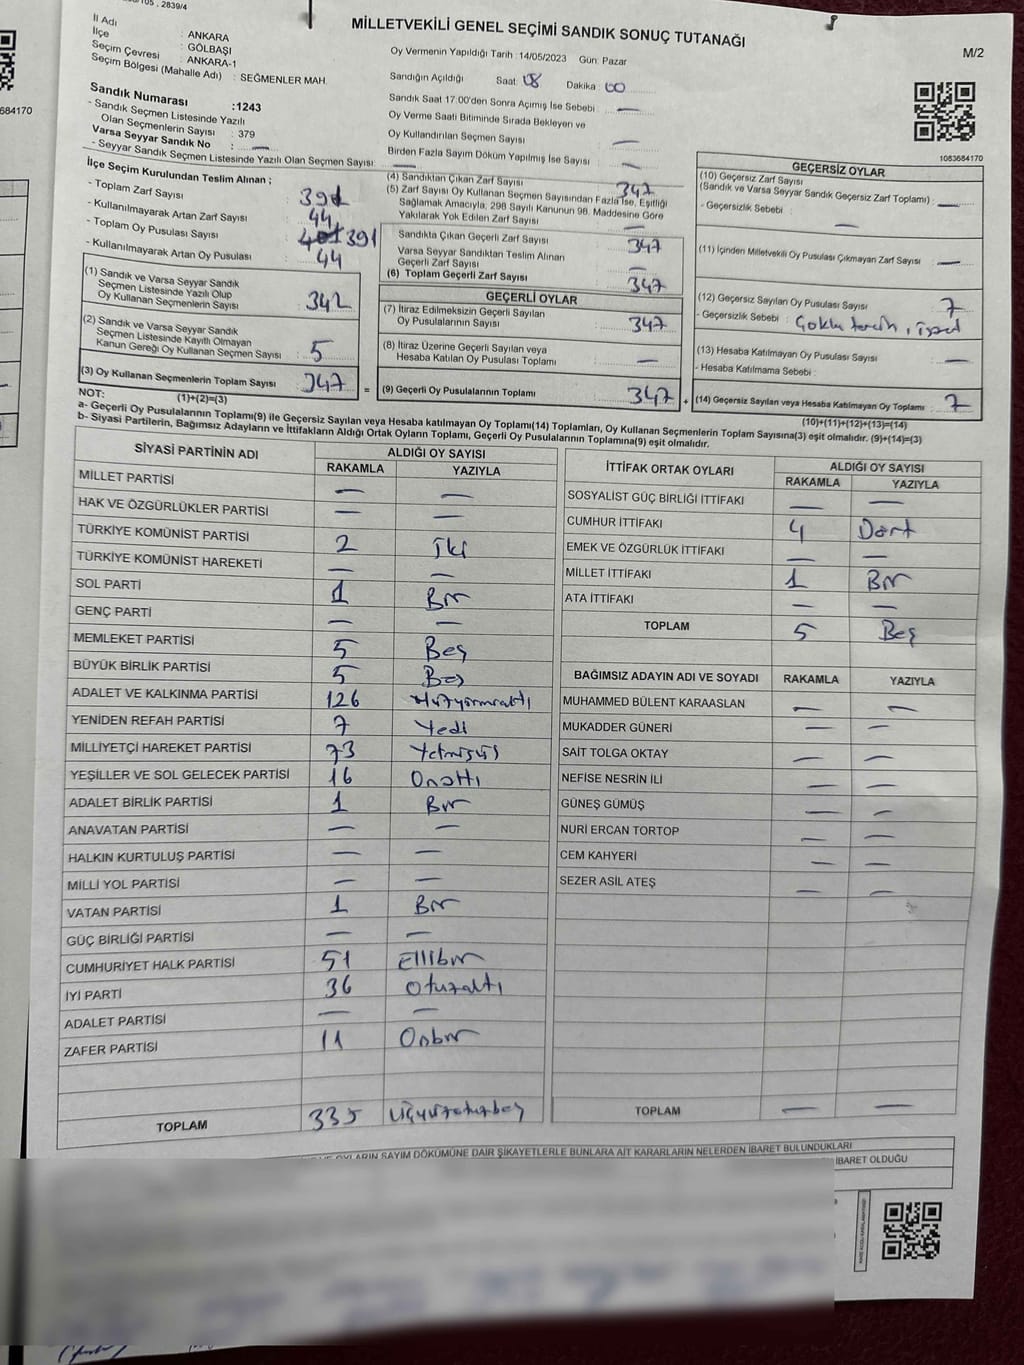 , 2839/4
İl Adı : ANKARA
İlçe : GÖLBAŞI
Seçim Çevresi : ANKARA-1
Seçim Bölgesi (Mahalle Adı) : SEĞMENLER MAH.
MİLLETVEKİLİ GENEL SEÇİMİ SANDIK SONUÇ TUTANAĞI
M/2
Oy Vermenin Yapıldığı Tarih :14/05/2023 Gün: Pazar
Sandığın Açıldığı Saat: 08 Dakika : 00
Sandık Saat 17:00'den Sonra Açılmış İse Sebebi : —
Oy Verme Saati Bitiminde Sırada Bekleyen ve
Oy Kullandırılan Seçmen Sayısı : —
Birden Fazla Sayım Döküm Yapılmış İse Sayısı : —
Sandık Numarası :1243
- Sandık Seçmen Listesinde Yazılı
Olan Seçmenlerin Sayısı : 379
Varsa Seyyar Sandık No : —
- Seyyar Sandık Seçmen Listesinde Yazılı Olan Seçmen Sayısı: —
684170
1083684170
İlçe Seçim Kurulundan Teslim Alınan ;
- Toplam Zarf Sayısı : 391
- Kullanılmayarak Artan Zarf Sayısı : 44
- Toplam Oy Pusulası Sayısı : 391
- Kullanılmayarak Artan Oy Pusulası : 44
(1) Sandık ve Varsa Seyyar Sandık
Seçmen Listesinde Yazılı Olup
Oy Kullanan Seçmenlerin Sayısı : 342
(2) Sandık ve Varsa Seyyar Sandık
Seçmen Listesinde Kayıtlı Olmayan
Kanun Gereği Oy Kullanan Seçmen Sayısı : 5
(3) Oy Kullanan Seçmenlerin Toplam Sayısı : 347
(1)+(2)=(3)
(4) Sandıktan Çıkan Zarf Sayısı : 347
(5) Zarf Sayısı Oy Kullanan Seçmen Sayısından Fazla İse, Eşitliği
Sağlamak Amacıyla, 298 Sayılı Kanunun 98. Maddesine Göre
Yakılarak Yok Edilen Zarf Sayısı : —
Sandıkta Çıkan Geçerli Zarf Sayısı : 347
Varsa Seyyar Sandıktan Teslim Alınan
Geçerli Zarf Sayısı : —
(6) Toplam Geçerli Zarf Sayısı : 347
GEÇERLİ OYLAR
(7) İtiraz Edilmeksizin Geçerli Sayılan
Oy Pusulalarının Sayısı : 347
(8) İtiraz Üzerine Geçerli Sayılan veya
Hesaba Katılan Oy Pusulası Toplamı : —
= (9) Geçerli Oy Pusulalarının Toplamı : 347
GEÇERSİZ OYLAR
(10) Geçersiz Zarf Sayısı
(Sandık ve Varsa Seyyar Sandık Geçersiz Zarf Toplamı) : —
- Geçersizlik Sebebi : —
(11) İçinden Milletvekili Oy Pusulası Çıkmayan Zarf Sayısı : —
(12) Geçersiz Sayılan Oy Pusulası Sayısı : 7
- Geçersizlik Sebebi : Çoklu tercih,
(13) Hesaba Katılmayan Oy Pusulası Sayısı : —
- Hesaba Katılmama Sebebi :
+ (14) Geçersiz Sayılan veya Hesaba Katılmayan Oy Toplamı : 7
(10)+(11)+(12)+(13)=(14)
NOT:
a- Geçerli Oy Pusulalarının Toplamı(9) ile Geçersiz Sayılan veya Hesaba katılmayan Oy Toplamı(14) Toplamları, Oy Kullanan Seçmenlerin Toplam Sayısına(3) eşit olmalıdır. (9)+(14)=(3)
b- Siyasi Partilerin, Bağımsız Adayların ve İttifakların Aldığı Ortak Oyların Toplamı, Geçerli Oy Pusulalarının Toplamına(9) eşit olmalıdır.
SİYASİ PARTİNİN ADI ALDIĞI OY SAYISI
RAKAMLA YAZIYLA
MİLLET PARTİSİ — —
HAK VE ÖZGÜRLÜKLER PARTİSİ — —
TÜRKİYE KOMÜNİST PARTİSİ 2 İki
TÜRKİYE KOMÜNİST HAREKETİ — —
SOL PARTİ 1 Bir
GENÇ PARTİ — —
MEMLEKET PARTİSİ 5 Beş
BÜYÜK BİRLİK PARTİSİ 5 Beş
ADALET VE KALKINMA PARTİSİ 126
YENİDEN REFAH PARTİSİ 7 Yedi
MİLLİYETÇİ HAREKET PARTİSİ 73 Yetmişüç
YEŞİLLER VE SOL GELECEK PARTİSİ 16 Onaltı
ADALET BİRLİK PARTİSİ 1 Bir
ANAVATAN PARTİSİ — —
HALKIN KURTULUŞ PARTİSİ — —
MİLLİ YOL PARTİSİ — —
VATAN PARTİSİ 1 Bir
GÜÇ BİRLİĞİ PARTİSİ — —
CUMHURİYET HALK PARTİSİ 51 Ellibir
İYİ PARTİ 36 Otuzaltı
ADALET PARTİSİ — —
ZAFER PARTİSİ 11 Onbir
TOPLAM 335 Üçyüzotuzbeş
İTTİFAK ORTAK OYLARI ALDIĞI OY SAYISI
RAKAMLA YAZIYLA
SOSYALİST GÜÇ BİRLİĞİ İTTİFAKI — —
CUMHUR İTTİFAKI 4 Dört
EMEK VE ÖZGÜRLÜK İTTİFAKI — —
MİLLET İTTİFAKI 1 Bir
ATA İTTİFAKI — —
TOPLAM 5 Beş
BAĞIMSIZ ADAYIN ADI VE SOYADI RAKAMLA YAZIYLA
MUHAMMED BÜLENT KARAASLAN — —
MUKADDER GÜNERİ — —
SAİT TOLGA OKTAY — —
NEFİSE NESRİN İLİ — —
GÜNEŞ GÜMÜŞ — —
NURİ ERCAN TORTOP — —
CEM KAHYERİ — —
SEZER ASİL ATEŞ — —
TOPLAM — —
OYLARIN SAYIM DÖKÜMÜNE DAİR ŞİKAYETLERLE BUNLARA AİT KARARLARIN NELERDEN İBARET BULUNDUKLARI
İBARET OLDUĞU